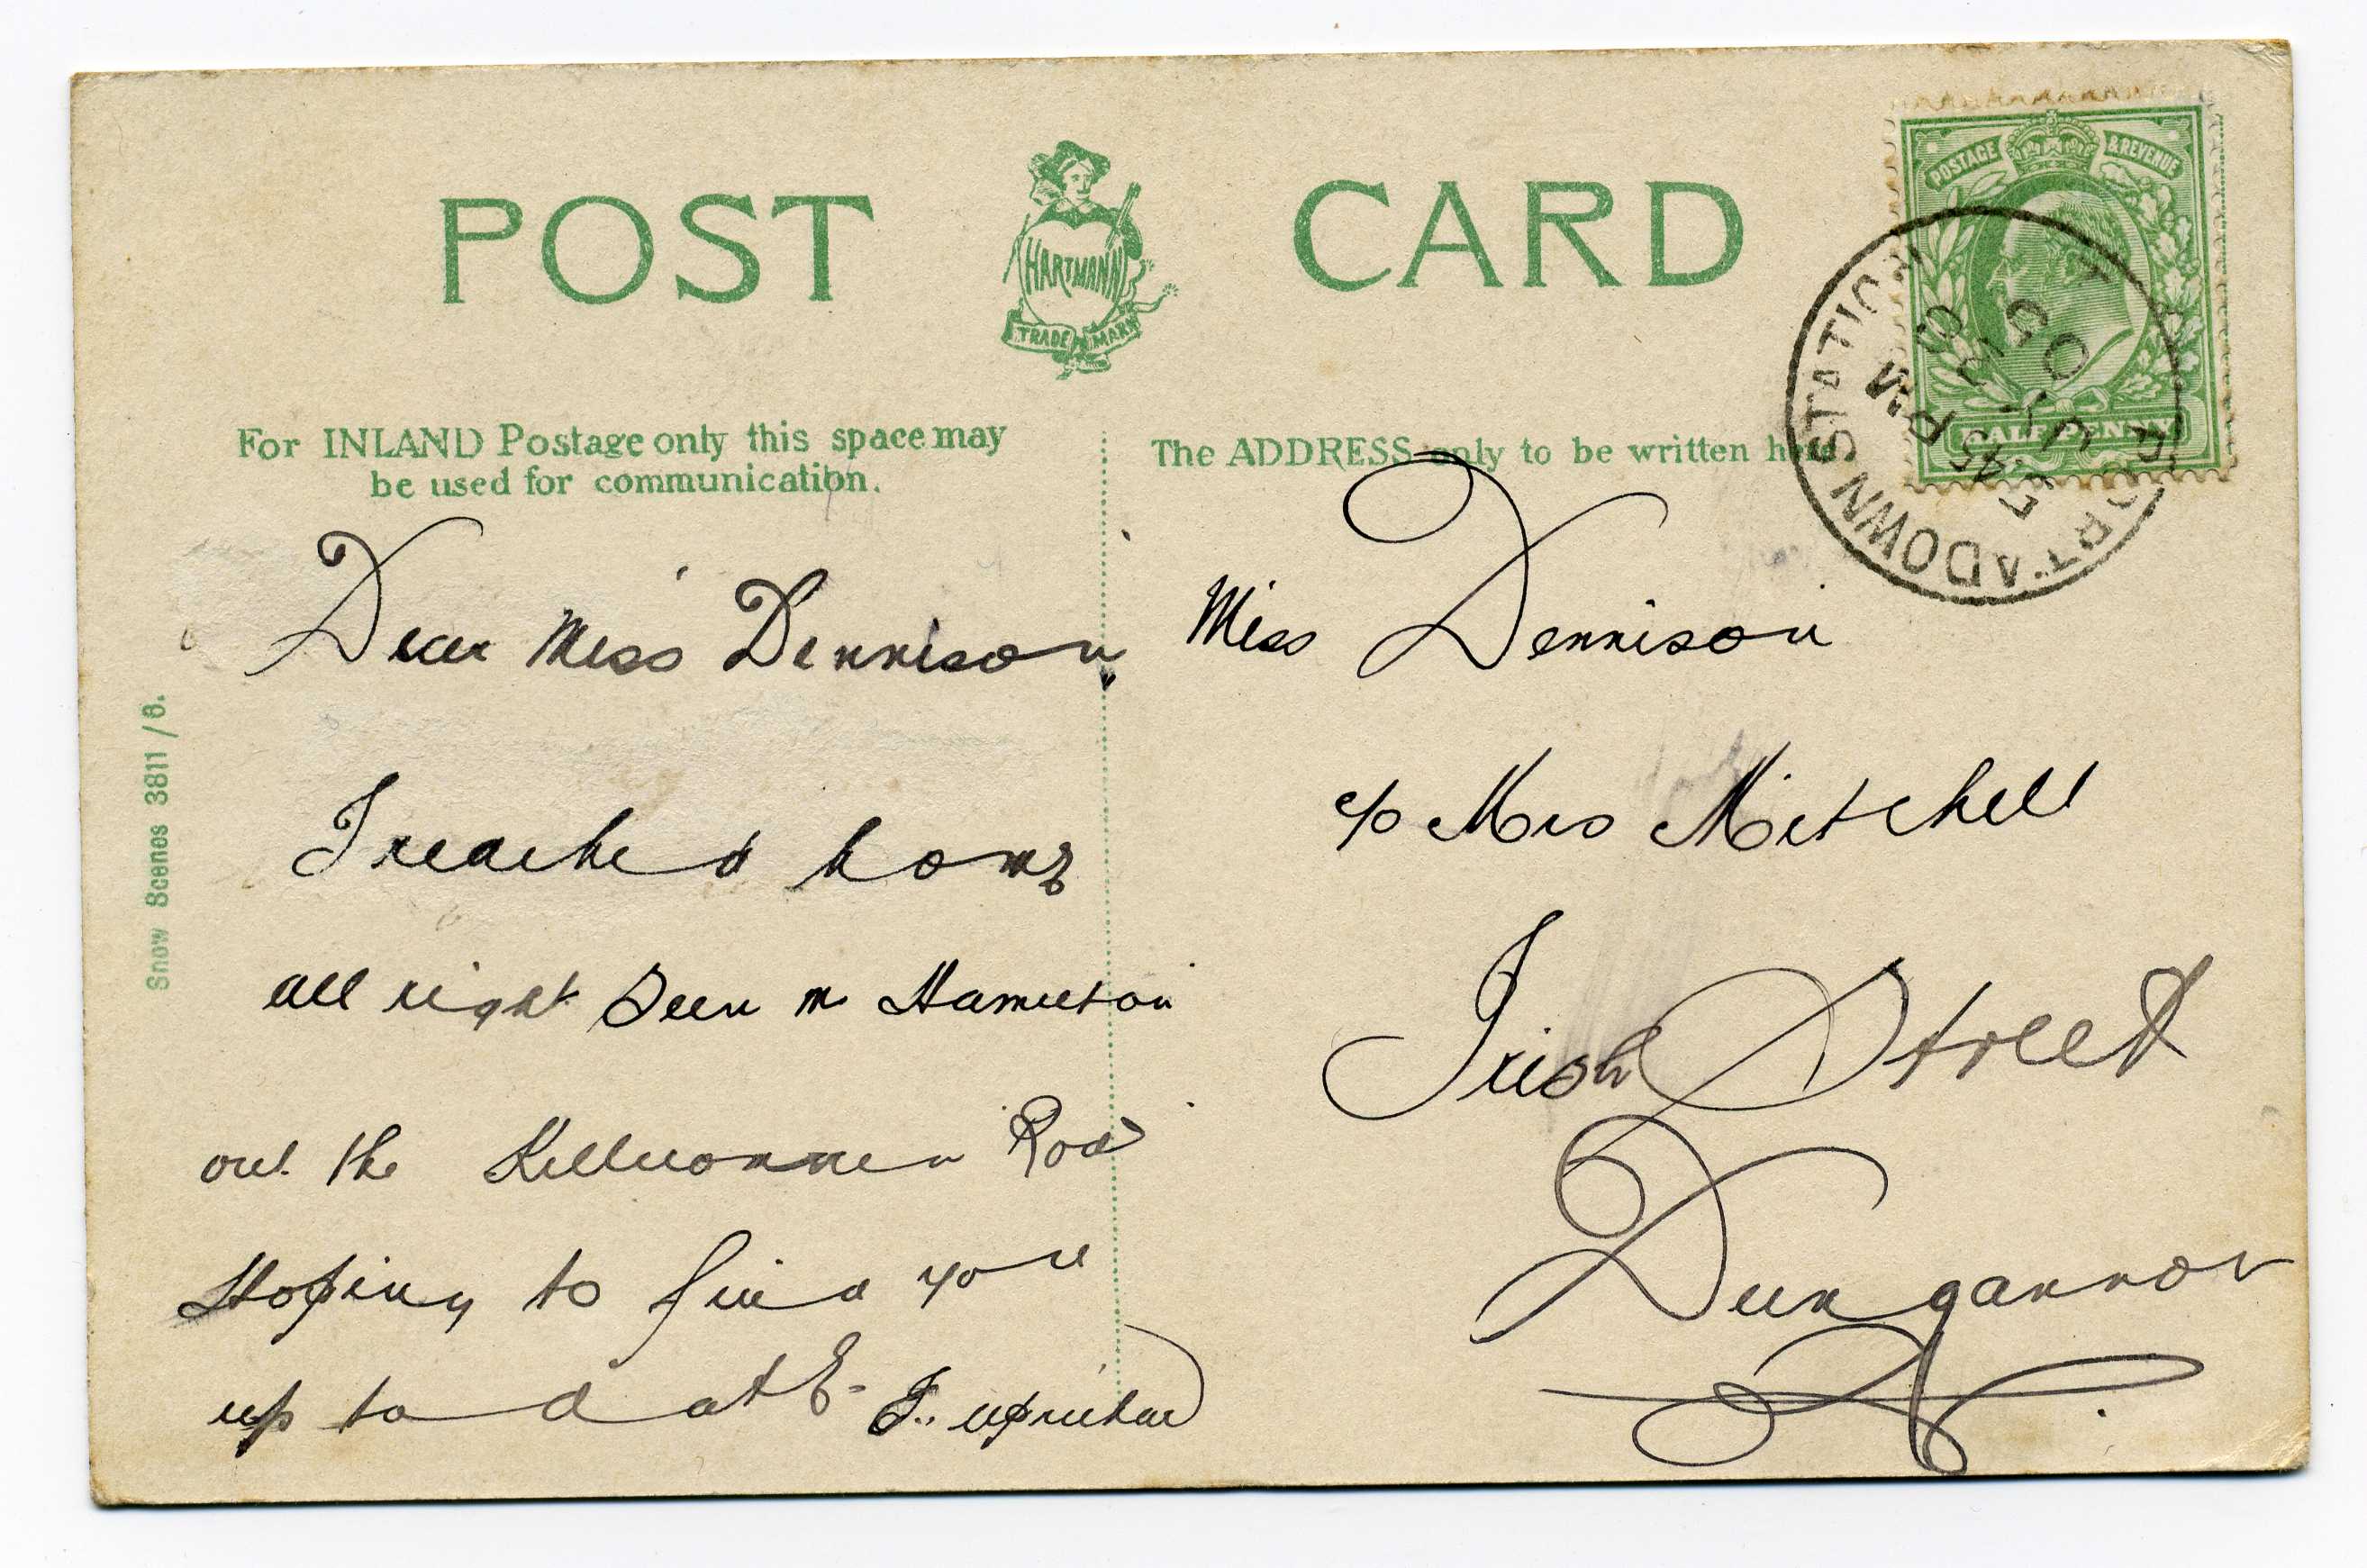 POST CARD
HARTMANN
TRADE MARK
POSTAGE & REVENUE
HALFPENNY
PORTADOWN STATION
5 45 PM
For INLAND Postage only this space may
be used for communication.
The ADDRESS only to be written here
Dear Miss Dennison
I reached home
all right Seen Mr Hamilton
out the Road
Hoping to find you
up to date - F. uprichard
Miss Dennison
c/o Mrs Mitchell
Irish Street
Dungannon
Snow Scenes 3811/6.